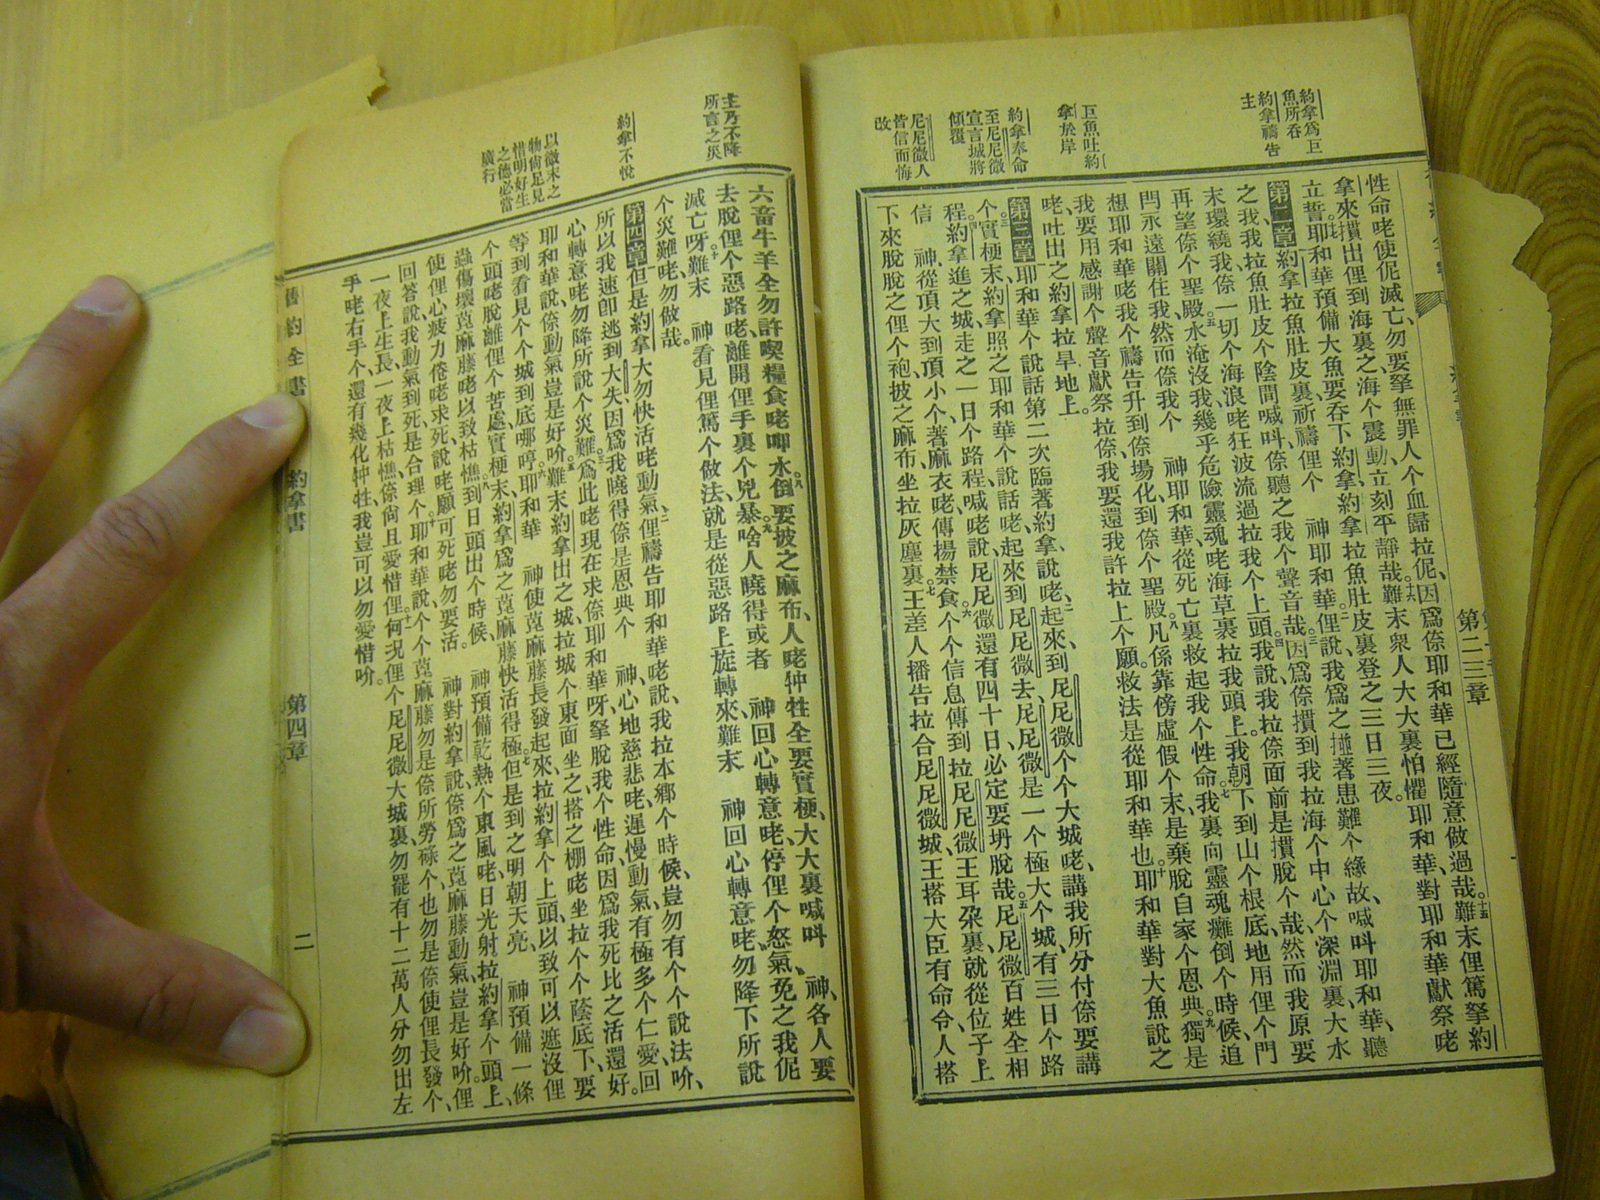 約拿爲巨
魚所吞
約拿禱告
主
巨魚吐約
拿於岸
約拿奉命
至尼尼微
宣言城將
傾覆
尼尼微人
皆信而悔
改
第二三章
性命咾使伲滅亡、勿要拏無罪人个血歸拉伲、因爲倷耶和華已經隨意做過哉。十五難末俚篤拏約
拿來摜出俚到海裏之海个震動、立刻平靜哉。十六難末衆人大大裏怕懼耶和華、對耶和華獻祭咾
立誓。十七耶和華預備大魚、要吞下約拿、約拿拉魚肚皮裏登之三日三夜。
第二章約拿拉魚肚皮裏祈禱俚个 神耶和華。二俚說、我爲之掽著患難个緣故、喊呌耶和華、聽
之我、我拉魚肚皮个陰間喊呌、倷聽之我个聲音哉。三因爲倷摜到我拉海个中心个深淵裏、大水
末環繞我、倷一切个海浪咾狂波流過拉我个上頭。四我說、我拉倷面前是摜脫个哉、然而我原要
再望倷个聖殿。五水淹沒我、幾乎危險靈魂咾海草裹拉我頭上。六我朝下到山个根底、地用俚个門
閂永遠關住我、然而倷我个 神耶和華、從死亡裏救起我个性命。七我裏向靈魂癱倒个時候、追
想耶和華咾我个禱告升到倷場化、到倷个聖殿。八凡係靠傍虛假个末、是棄脫自家个恩典。九獨是
我要用感謝个聲音獻祭拉倷、我要還我許拉上个願。救法是從耶和華也。十耶和華對大魚說之
咾、吐出之約拿拉旱地上。
第三章耶和華个說話第二次臨著約拿、說咾、二起來、到尼尼微个个大城咾、講我所分付倷要講
个。三實梗末、約拿照之耶和華个說話咾、起來到尼尼微去、尼尼微是一个極大个城、有三日个路
程。四約拿進之城、走之一日个路程、喊咾說、尼尼微還有四十日必定要坍脫哉。五尼尼微百姓全相
信 神、從頂大到頂小个著麻衣咾傳揚禁食。六个个信息傳到拉尼尼微王耳朶裏、就從位子上
下來、脫脫之俚个袍、披之麻布、坐拉灰塵裏。七王差人播告拉合尼尼微城、王搭大臣有命令、人搭
主乃不降
所言之災
約拿不悅
以微末之
物尙足見
惜明好生
之德必當
廣行
六畜牛羊、全勿許喫糧食咾呷水。八倒要披之麻布、人咾牲牲全要實梗、大大裏喊呌 神、各人要
去脫俚个惡路咾、離開俚手裏个兇暴。九啥人曉得或者 神回心轉意咾、停俚个怒氣、免之我伲
滅亡呀。十難末 神看見俚篤个做法、就是從惡路上旋轉來、難末 神回心轉意咾、勿降下所說
个災難咾、勿做哉。
第四章但是約拿大勿快活咾動氣、二俚禱告耶和華咾說、我拉本鄉个時候、豈勿有个个說法吤、
所以我速卽逃到大失、因爲我曉得倷是恩典个 神、心地慈悲咾、遲慢動氣、有極多个仁愛、回
心轉意咾勿降所說个災難。三爲此咾現在求倷耶和華呀、拏脫我个性命、因爲我死比之活還好。
耶和華說、倷動氣豈是好吤。五難末約拿出之城、拉城个東面坐之、搭之棚咾坐拉个个蔭底下、要
等到看見个个城到底哪哼。六耶和華 神使蓖麻藤長發起來、拉約拿个上頭、以致可以遮沒俚
个頭咾、脫離俚个苦處、實梗末約拿爲之蓖麻藤快活得極。七但是到之明朝天亮 神預備一條
蟲傷壞蓖麻藤咾、以致枯憔。八到日頭出个時候 神預備乾熱个東風咾、日光射拉約拿个頭上、
使俚心疲力倦咾求死、說咾、願可死咾勿要活。九神對約拿說、倷爲之蓖麻藤動氣、豈是好吤。俚
回答說、我動氣到死、是合理个。十耶和華說、个个蓖麻藤勿是倷所勞碌个、也勿是倷使俚長發个、
一夜上生長、一夜上枯憔、倷尙且愛惜俚。十一何況俚个尼尼微大城裏、勿罷有十二萬人分勿出左
手咾右手个、還有幾化牲牲、我豈可以勿愛惜吤。
舊約全書 約拿書 第四章 二